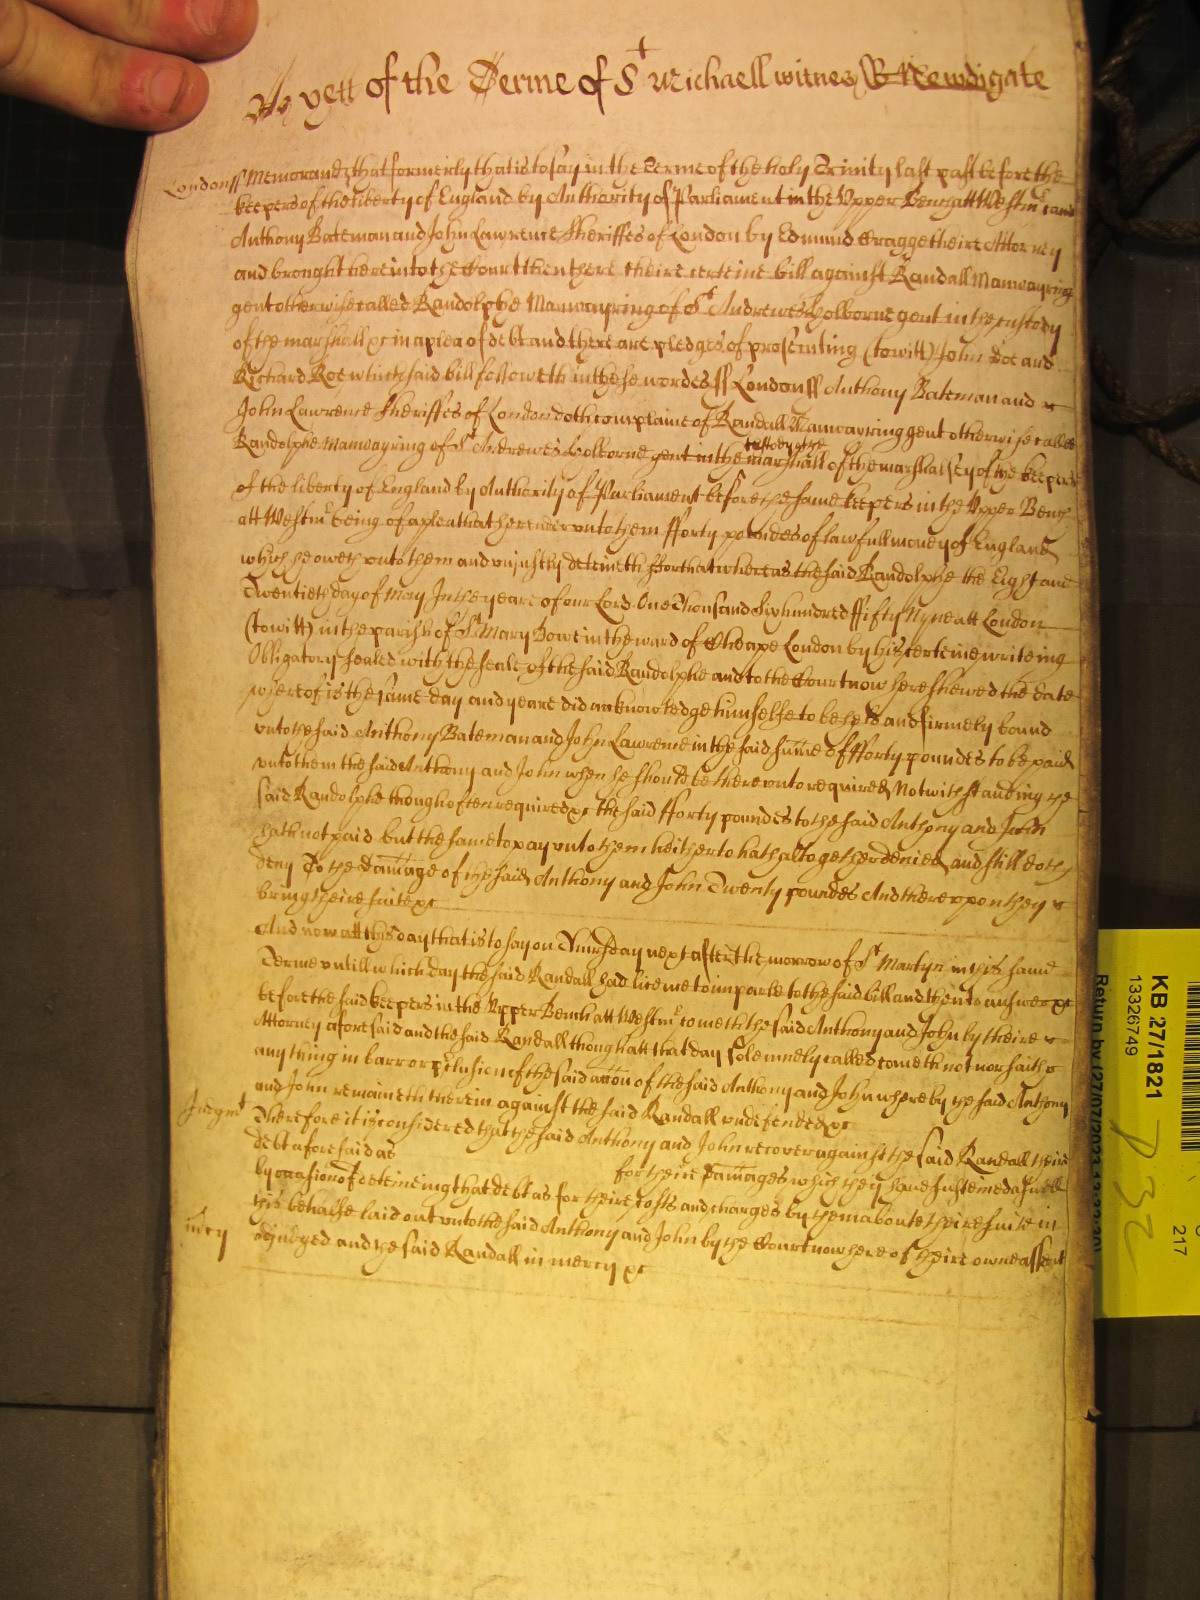 As yett of the Terme of St Michaell witnes R Newdigate
London ss Memorand that formerly that is to say in the Terme of the holy Trinity last past before the
keepers of the liberty of England by Authority of Parliament in the Upper Bench att Westmr came
Anthony Bateman and John Lawrence Sheriffes of London by Edmund Cragge theire Attorney
and brought here into the Court then there theire certeine bill against Randall Manwayring
gent otherwise called Randolphe Manwayring of St Andrewes holborne gent in the custody
of the marshall &c in a plea of debt and there are pledges of prosecuting (to witt) John Doe and
Richard Roe which said bill followeth in these wordes ss London ss Anthony Bateman and
John Lawrence Sheriffes of London doth complaine of Randall Manwayring gent otherwise called
Randolphe Manwayring of St Andrewes holborne gent in the marshall of the marshalsey of the keepers
custody of the
of the liberty of England by Authority of Parliament before the same keepers in the Upper Bench
att Westmr being of a plea that he render unto them fforty poundes of lawfull money of England
which he oweth unto them and uniustly deteineth ffor that whereas the said Randolphe the Eight and
Twentieth day of May In the yeare of our Lord One Thousand Six hundred ffifty Nyne att London
(to witt) in the parish of St Mary Bowe in the ward of Cheape London by his certeine writeing
Obligatory sealed with the seale of the said Randolphe and to the Court now here shewed the date
whereof is the same day and yeare did acknowledge himselfe to be held and firmely bound
unto the said Anthony Bateman and John Lawrence in the said summe of fforty poundes to be paid
unto them the said Anthony and John when he should be thereunto required Notwithstanding the
said Randolphe though often required &c the said fforty poundes to the said Anthony and John
hath not paid but the same to pay unto them heitherto hath altogether denied and still doth
deny To the damage of the said Anthony and John Twenty poundes And thereupon they
bring theire suite &c
And now att this day that is to say on Thursday next after the morrow of St Martyn in this same
Terme untill which day the said Randall had licence to imparle to the said bill and then to answer &c
before the said keepers in the Upper Bench att Westmr cometh the said Anthony and John by theire
Attorney aforesaid and the said Randall though att that day solemnely called cometh not nor saith
any thing in barr or preclusion of the said accon of the said Anthony and John whereby the said Anthony
and John remaineth therein against the said Randall undefended &c
Judgmt Therefore it is considered that the said Anthony and John recover against the said Randall theire
debt aforesaid as for theire damages which they have susteined aswell
by occasion of deteineing that debt as for theire costs and charges by them aboute theire suite in
this behalfe laid out unto the said Anthony and John by the Court now here of theire owne assent
mercy adiudged and the said Randall in mercy &c
KB 27/1821
13326749
Return by (27/07/2023
217
P 32